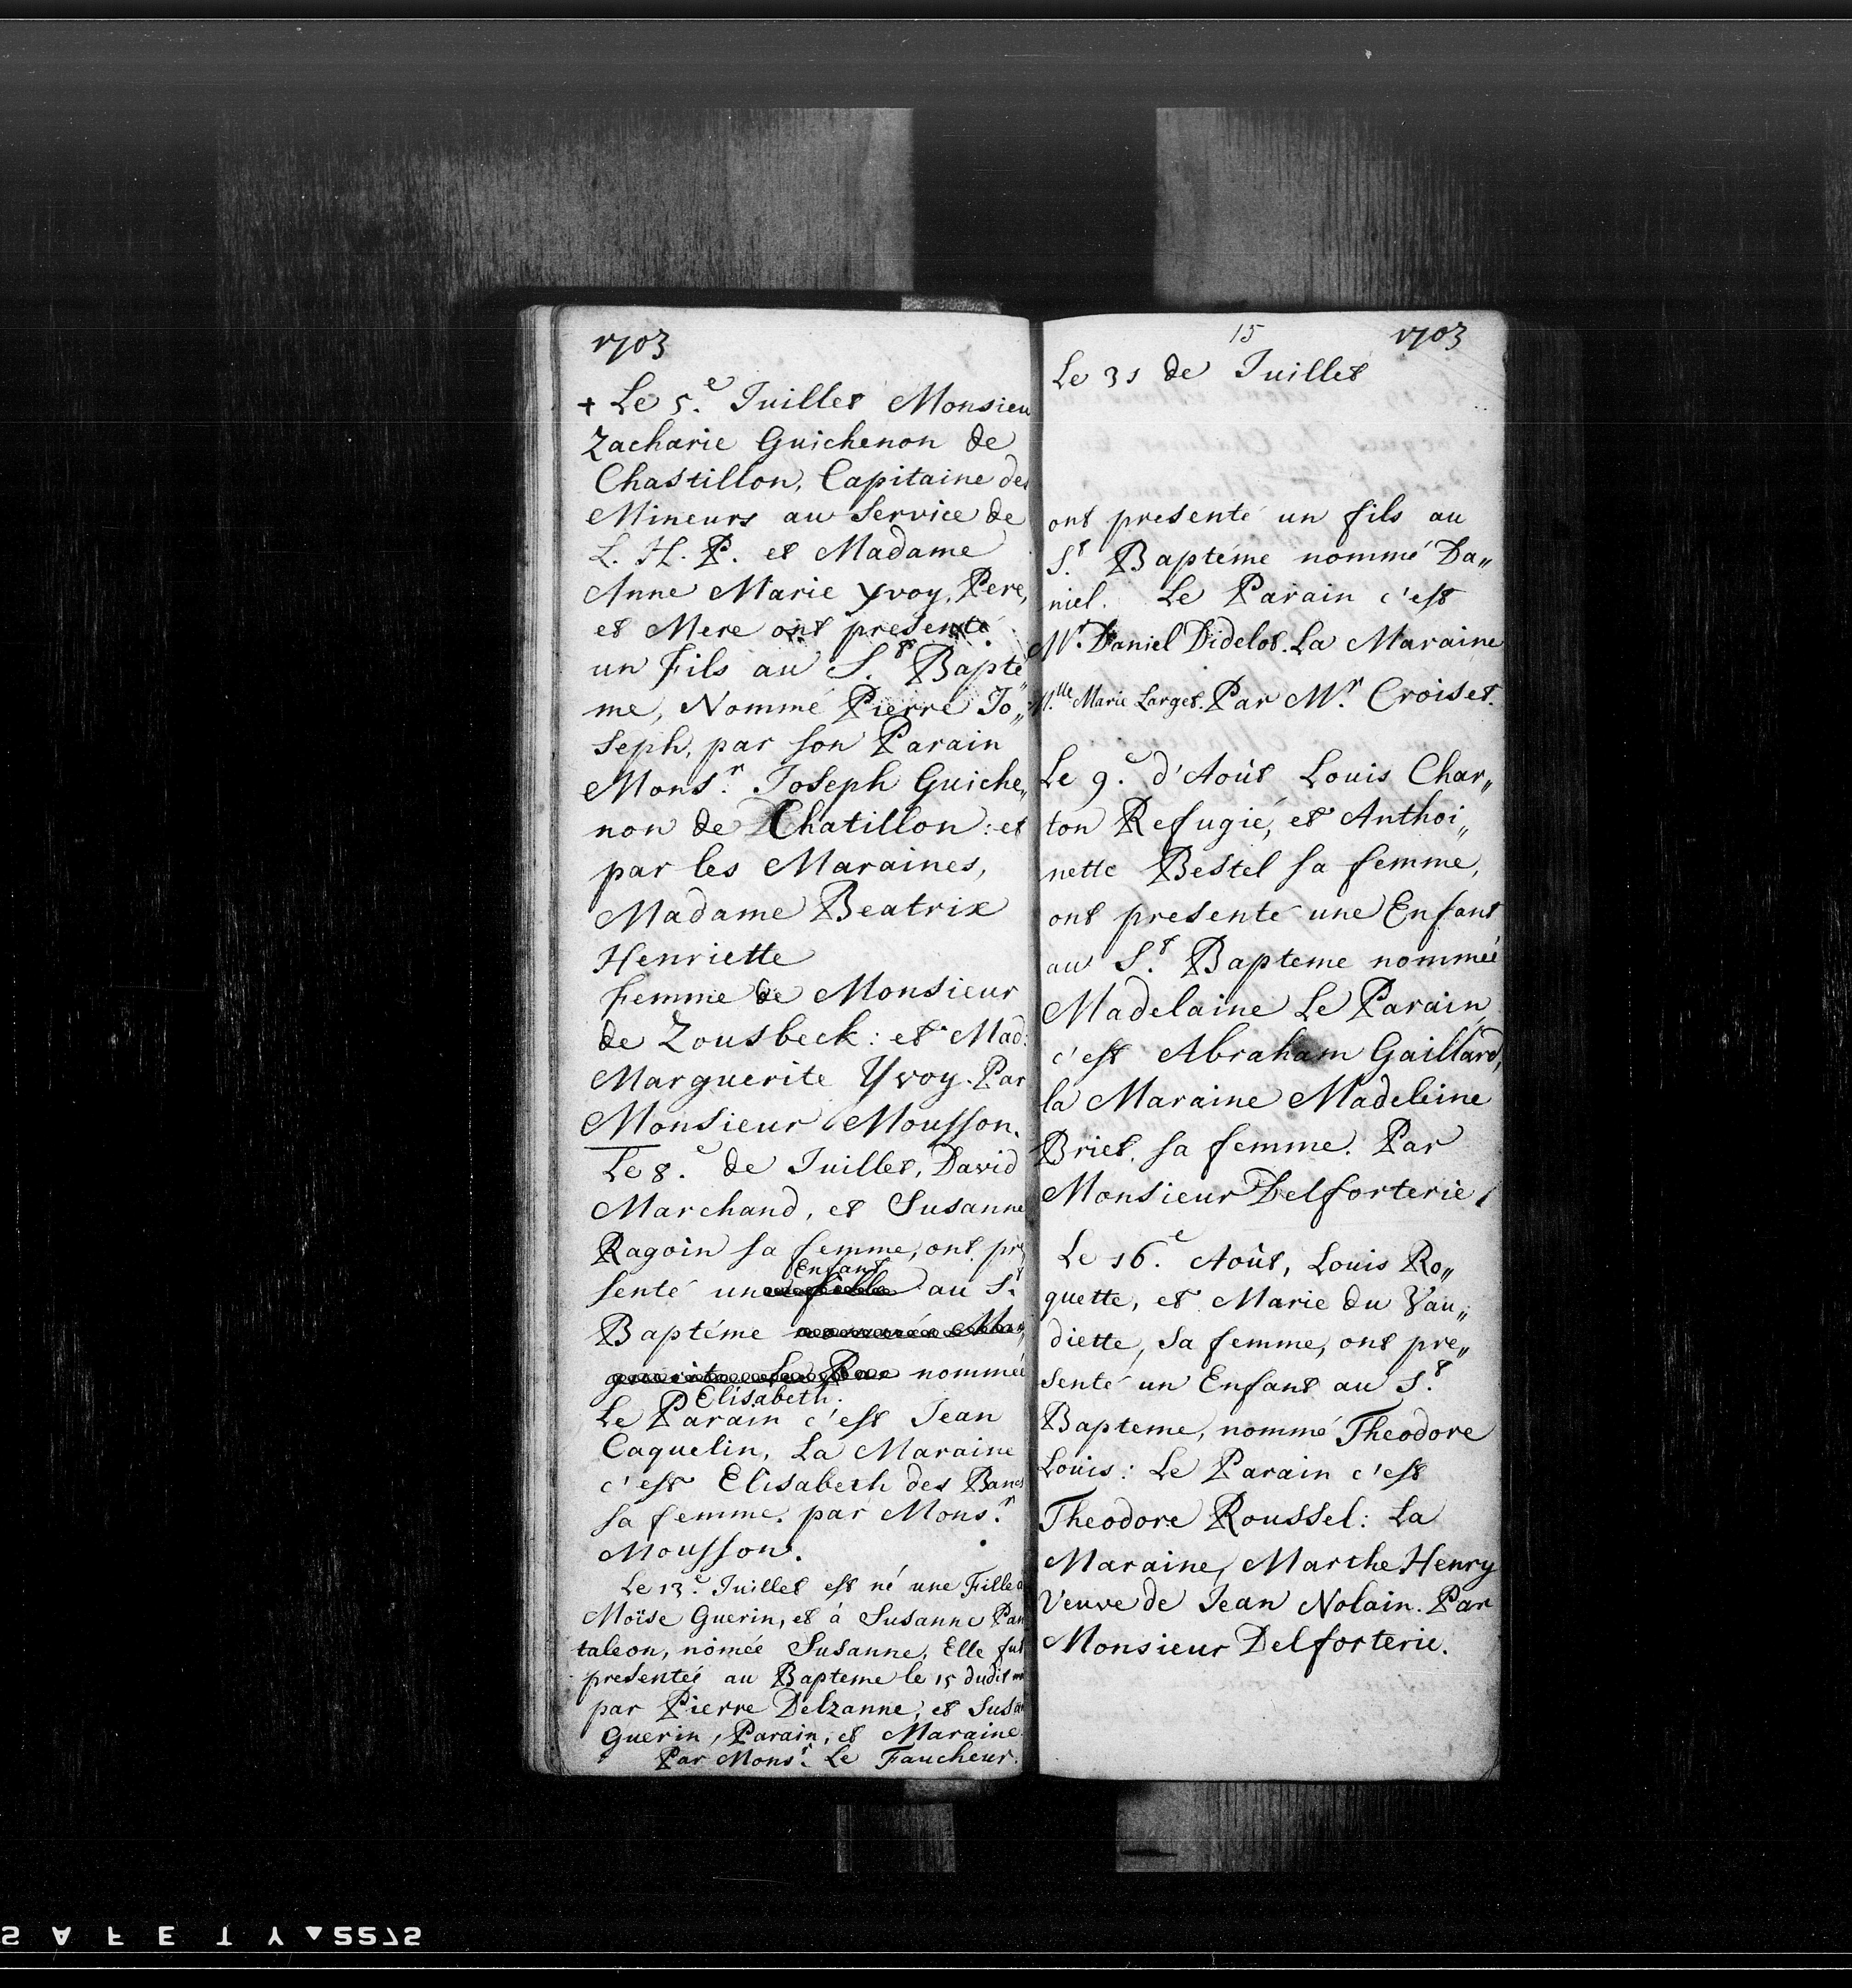 1703
+ Le 5.e Juillet Monsieu
Zacharie Guichenon de
Chastillon, Capitaine des
Mineurs au Service de
L. H. P. et Madame
Anne Marie Yvoy, Pere,
et Mere ont presenté
un Fils au S.t Bapte„
me, Nommé Pierre Jo„
seph, par son Parain
Mons.r Joseph Guiche„
non de Chatillon: et
par les Maraines,
Madame Beatrix
Henriette
femme de Monsieur
de Zousbeck: et Mad:
Marguerite Yvoy. Par
Monsieur Mousson.
Le 8.e de Juillet, David
Marchand, et Susanne
Ragoin sa femme, ont pre
Enfant
senté une fille au S.t
Baptéme nommée Mar„
guerite Le Par nommée
Elisabeth.
Le Parain c'est Jean
Caquelin, La Maraine
c'est Elisabeth des Bancs
sa femme. par Mons.r
Mousson.
Le 13.e Juillet est né une Fille a
Moïse Guerin, et à Susanne Pan
taleon, nômée Susanne, Elle fut
presenteé au Bapteme le 15 dudit
par Pierre Delzanne, et Susan
Guerin, Parain, et Maraine.
Par Mons.r Le Faucheur.
15 1703
Le 31 de Juillet
ont presenté un fils au
S.t Baptéme nommé Da„
niel. Le Parain c'est
M.r Daniel Didelot. La Maraine
M.lle Marie Larget. Par M.r Croiset.
Le 9.e d'Août Louis Char„
ton Refugié, et Anthoi„
nette Bestel sa femme,
ont presenté une Enfant
au S.t Bapteme nommée
Madelaine Le Parain
c'est Abraham Gaillard,
la Maraine Madeleine
Briet, sa femme. Par
Monsieur Delforterie,
Le 16.e Août, Louis Ro„
quette, et Marie du Vau„
diette, sa femme, ont pre„
senté un Enfant au S.t
Bapteme, nommé Theodore
Louis: Le Parain c'est
Theodore Roussel: La
Maraine, Marthe Henry
Veuve de Jean Nolain. Par
Monsieur Delforterie.
SAFETY▲5575